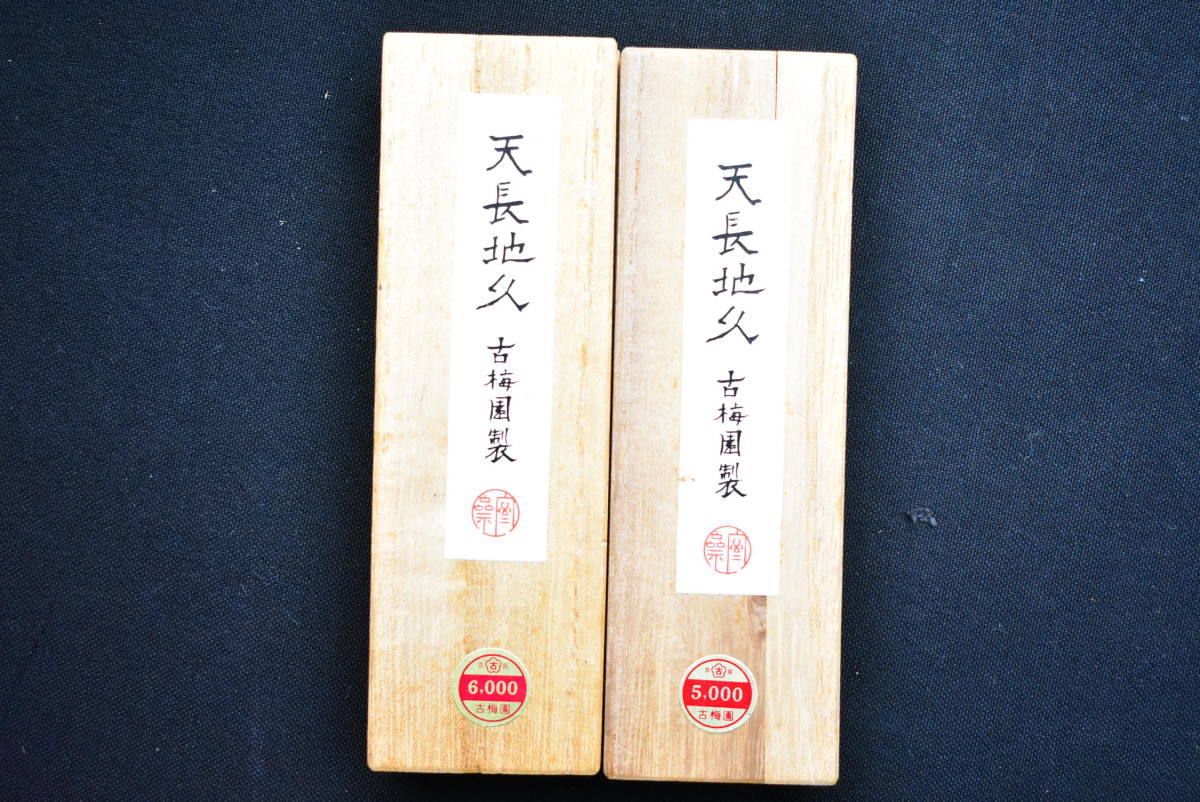 天長地久
古梅園製
古
6,000
古梅園
天長地久
古梅園製
古
5,000
古梅園